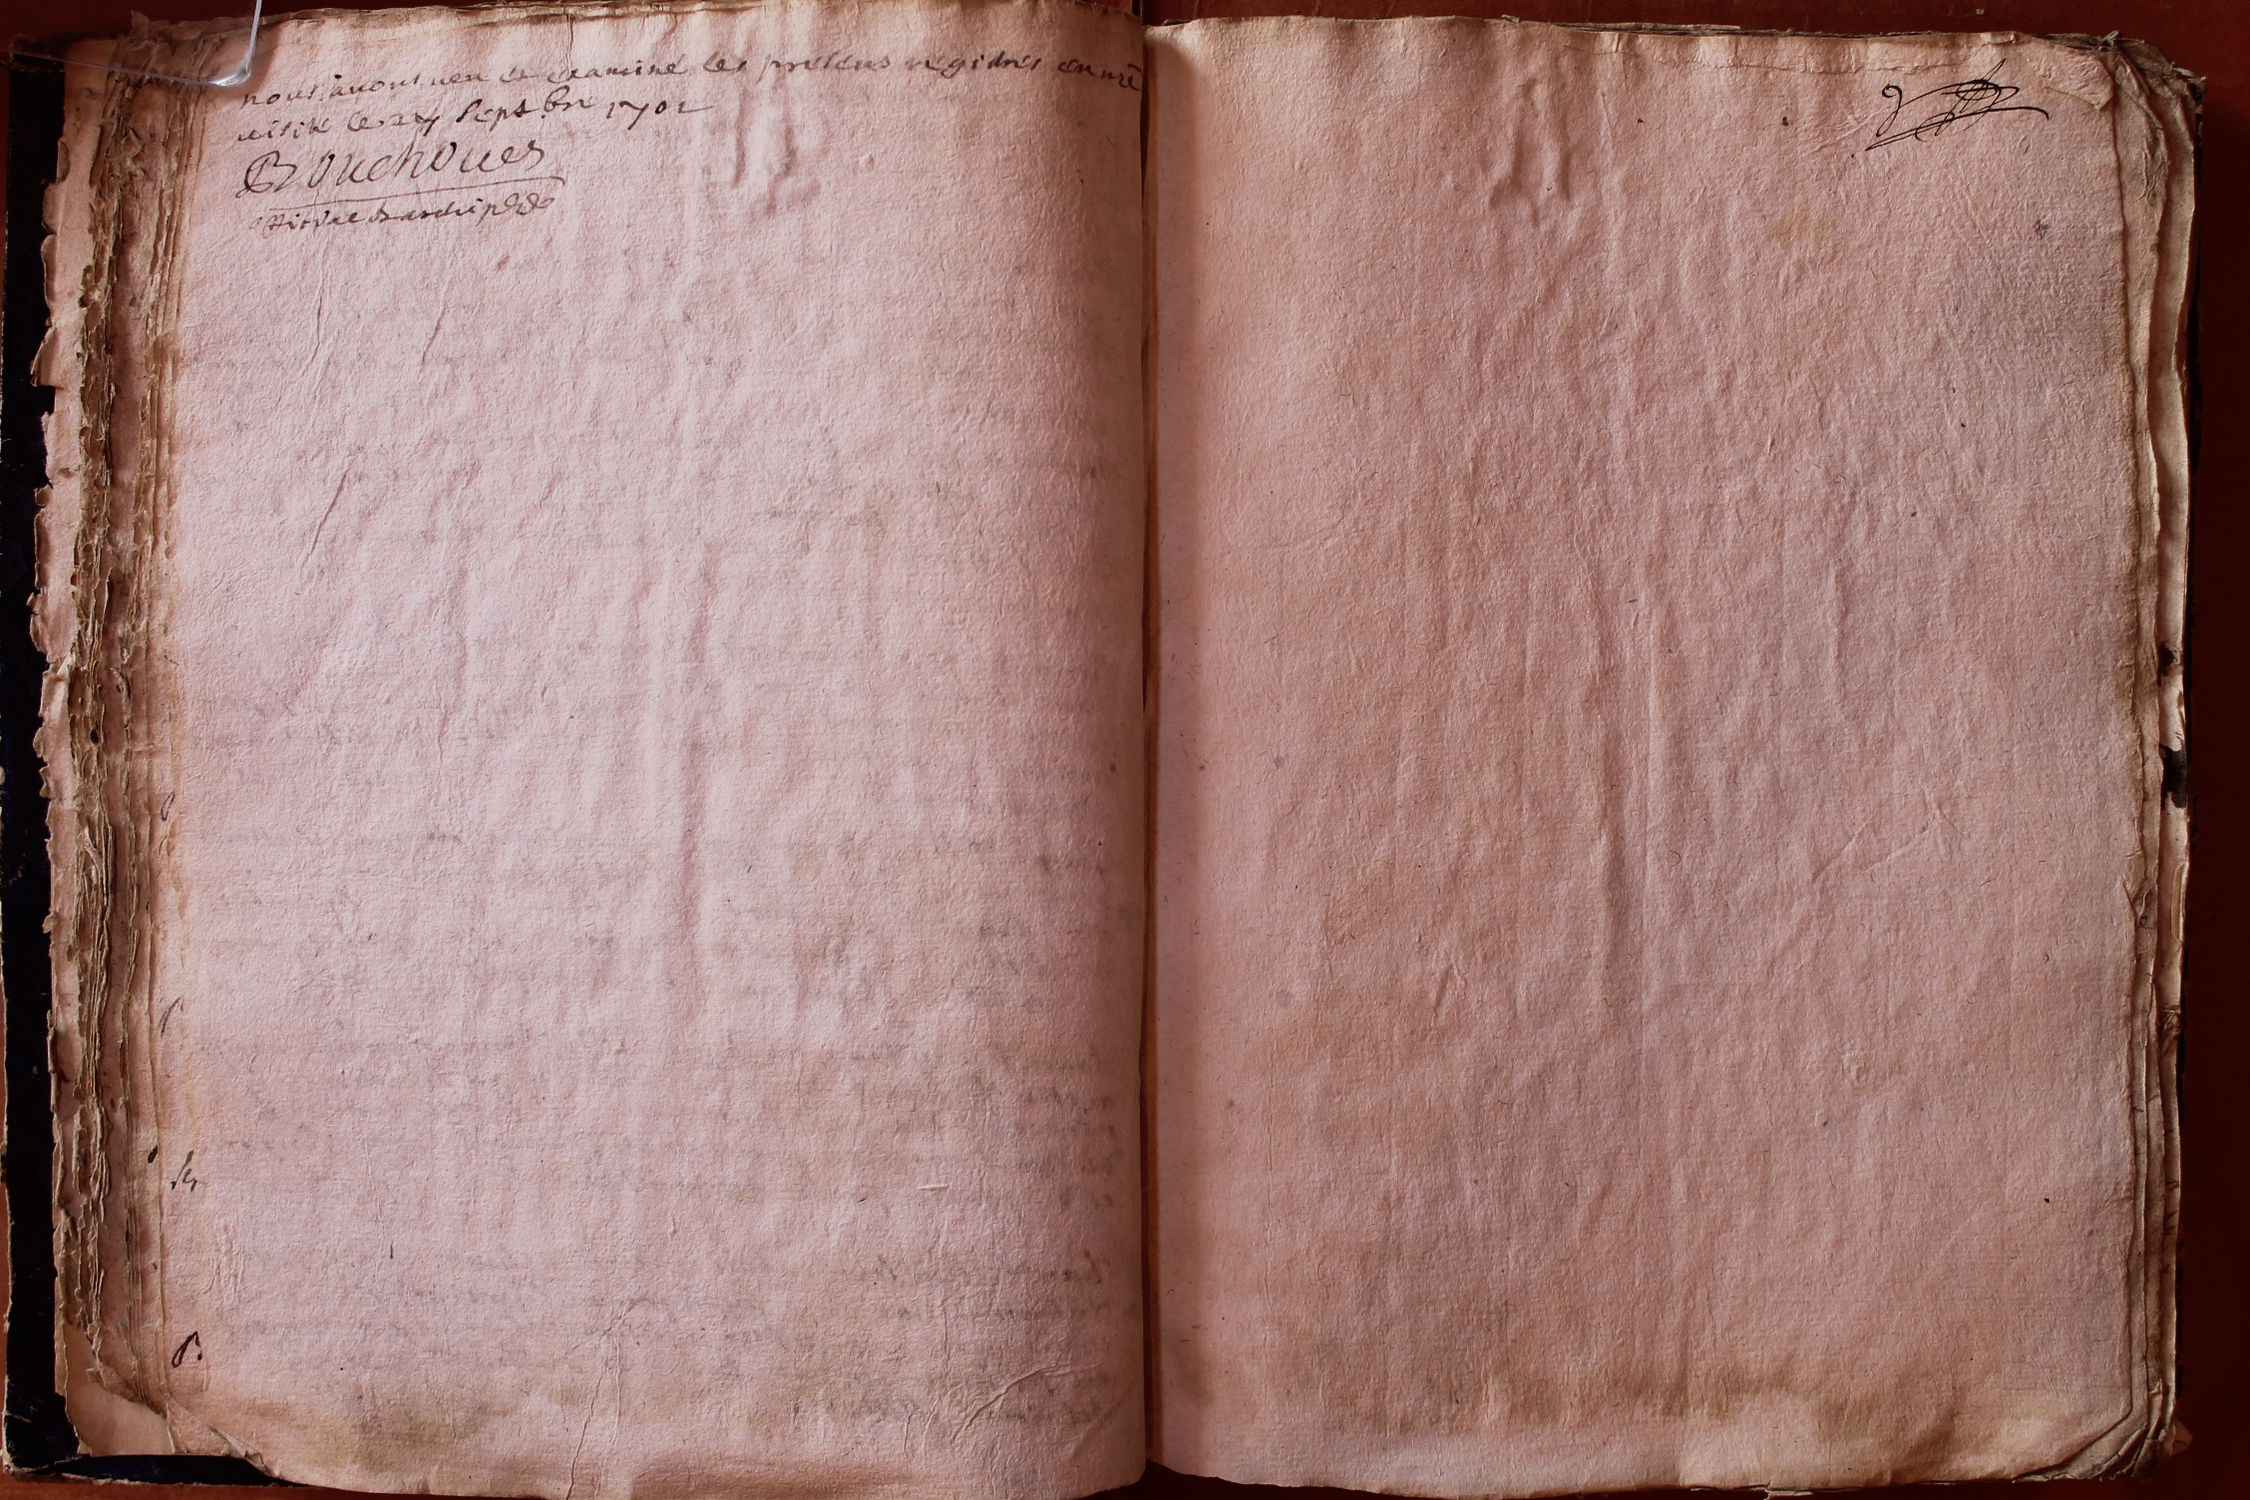 nous avons veu et examiné les presens registres en nre
visite le 27 septbre 1702
Bouchoues